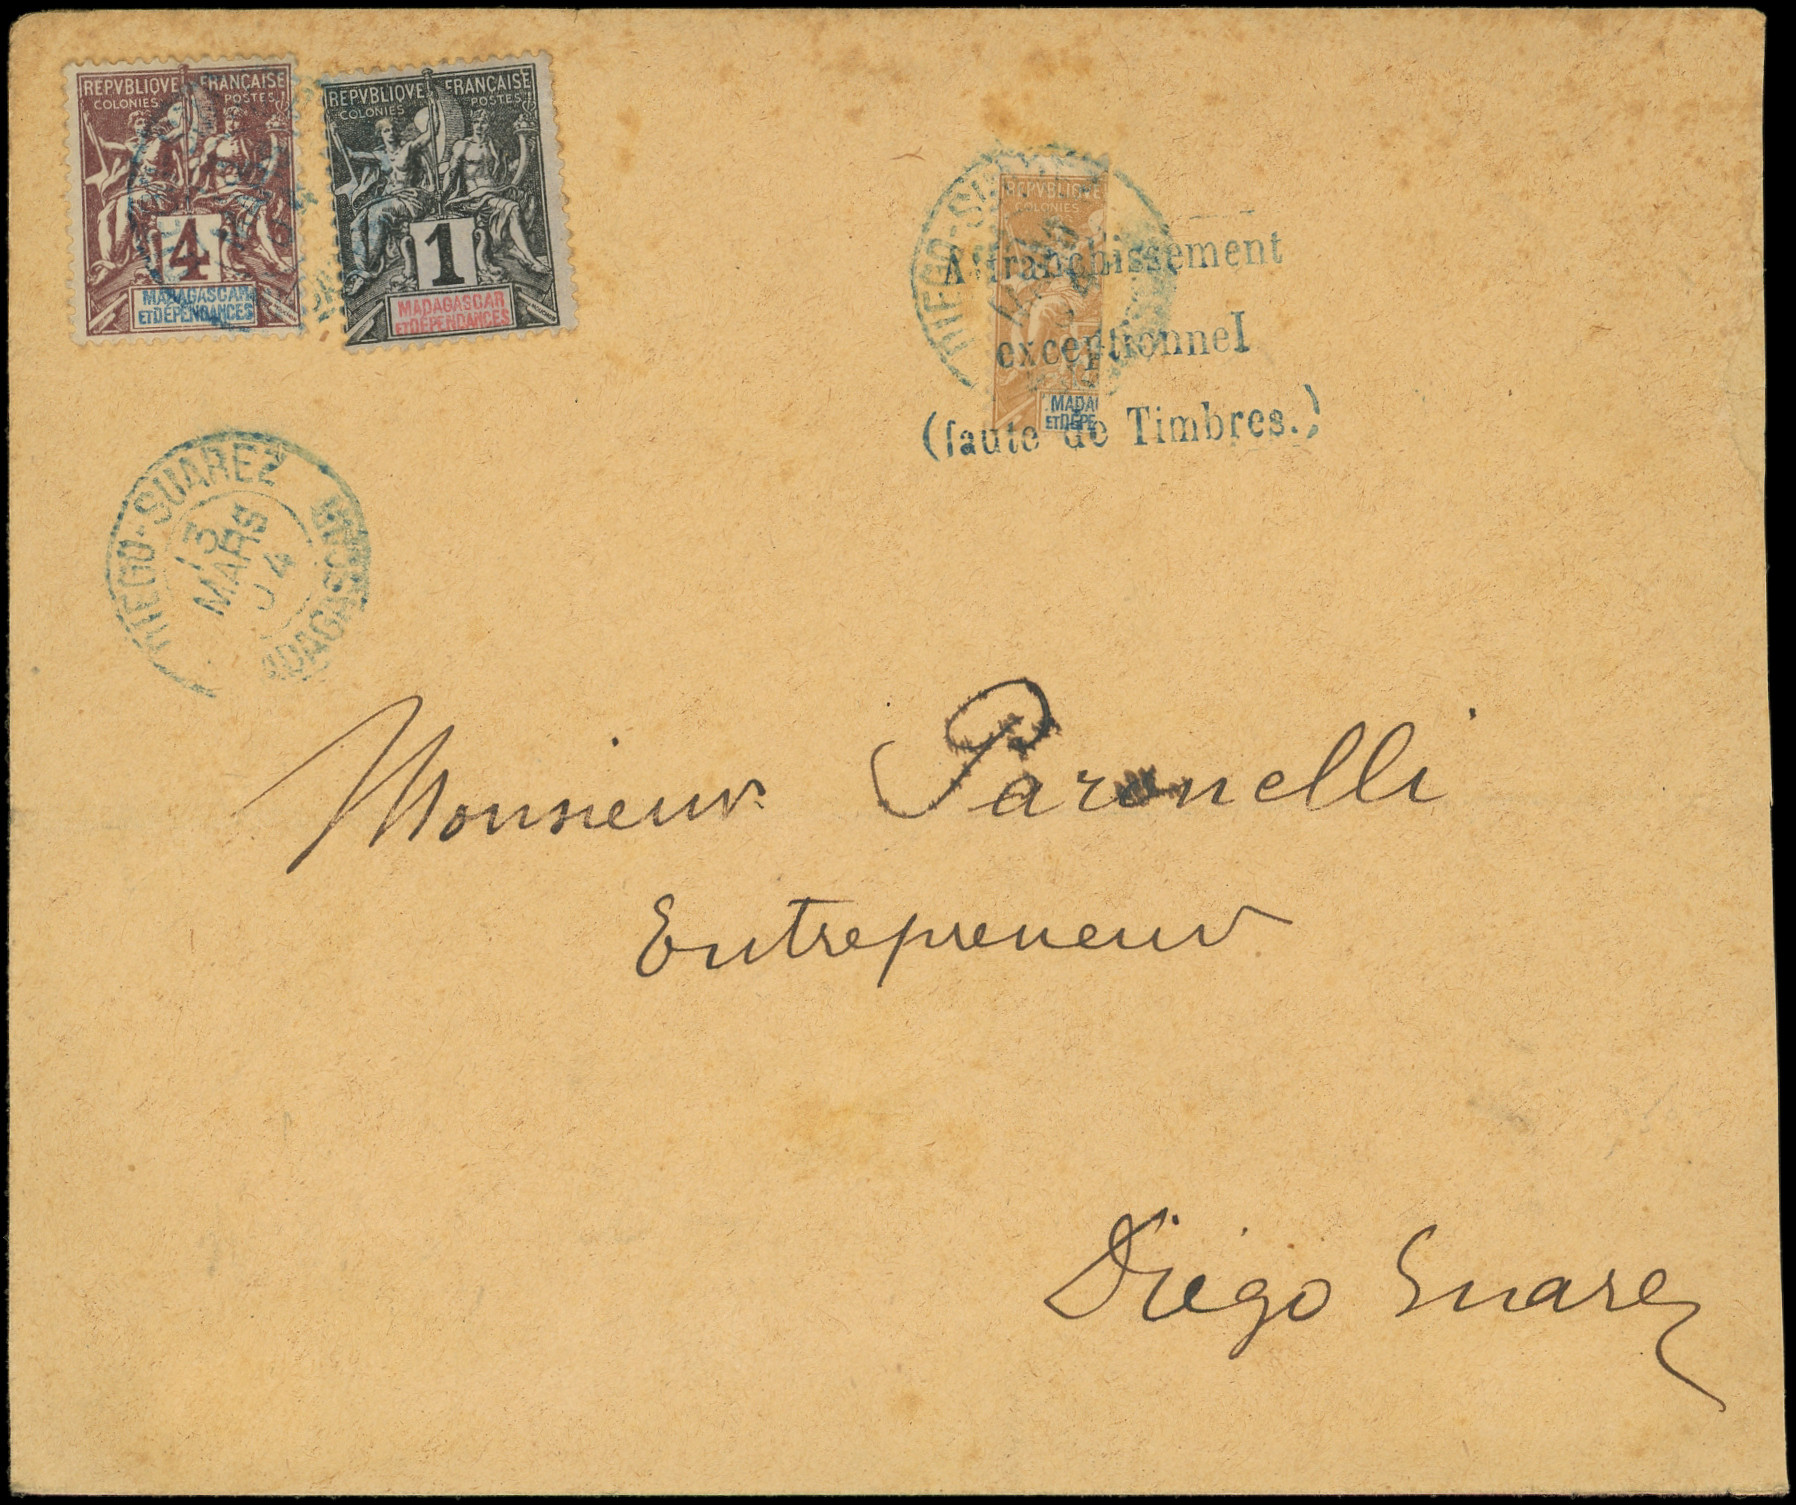 REPVBLIQVE FRANÇAISE
COLONIES POSTES
4
MADAGASCAR
ET DÉPENDANCES
REPVBLIQVE FRANÇAISE
COLONIES POSTES
1
MADAGASCAR
ET DÉPENDANCES
REPVBLIQVE
COLONIES
MADA
ET DÉPE
DIEGO-SU
Affranchissement
exceptionnel
(faute de Timbres.)
DIEGO-SUAREZ
13
MARS
04
MADAGASCAR
Monsieur Paronelli
Entrepreneur
Diégo Suarez